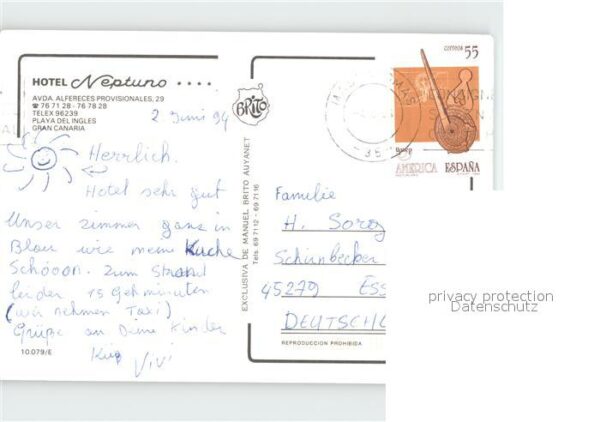 HOTEL Neptuno ....
AVDA. ALFERECES PROVISIONALES, 29
☎ 76 71 28 - 76 78 28
TELEX 96239
PLAYA DEL INGLES
GRAN CANARIA
BRITO
CORREOS 55
AMERICA ESPAÑA
2 Juni 94
Herrlich.
Hotel sehr gut
Unser zimmer ganz in
Blau wie meine Küche
Schööon. Zum Strand
leider 15 Gehminuten
(wir nehmen Taxi)
Grüße an Deine Kinder
Vivi
10.079/E
EXCLUSIVA DE MANUEL BRITO AUYANET
Tels. 69 71 12 - 69 71 16
Familie
H.
Schirnbecker
45279 ESS
DEUTSCHL
REPRODUCCION PROHIBIDA
privacy protection
Datenschutz